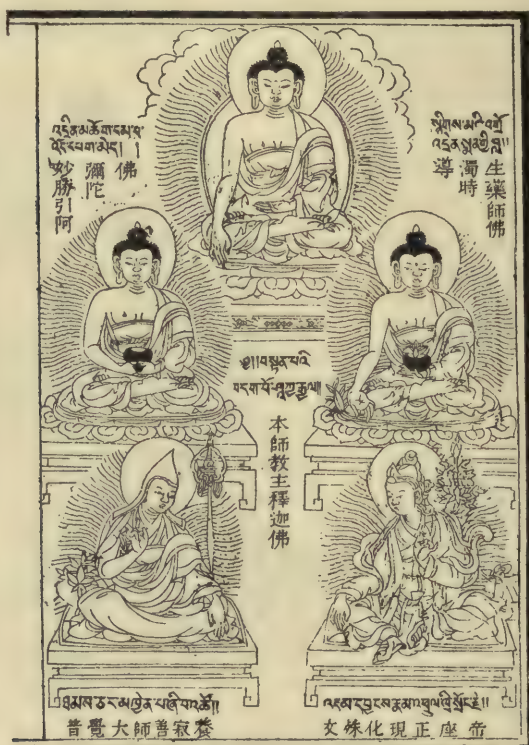 འདྲེན་མཆོག་དམ་པ་
འོད་དཔག་མེད།
妙勝引阿
彌陀
佛
སྙིགས་མའི་འགྲོ་
འདྲེན་སྨན་གྱི་བླ།།
導
濁時
生藥師佛
༄།།བསྟན་པའི་
བདག་པོ་ཤཱཀྱ་རྒྱལ།།
本師教主釋迦佛
ཐམས་ཅད་མཁྱེན་པ་ཞི་བ་འཚོ།།
普覺大師善寂養
འཇམ་དབྱངས་རྣམ་འཕྲུལ་ཁྲི་སྲོང་རྗེ།།
文殊化現正座帝